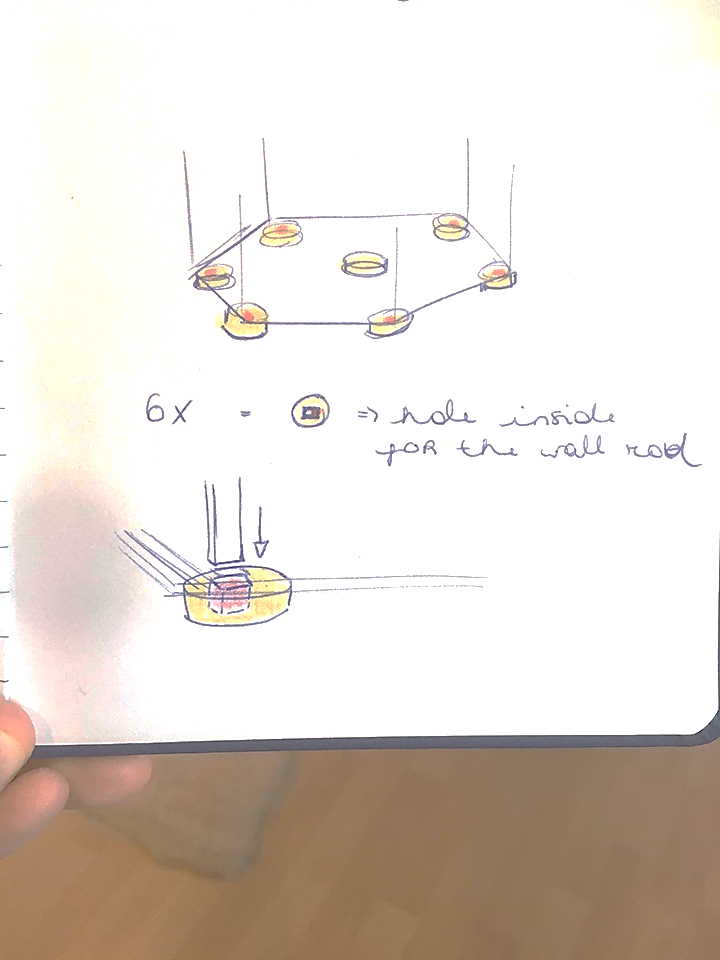 6x = => hole inside
for the wall rod